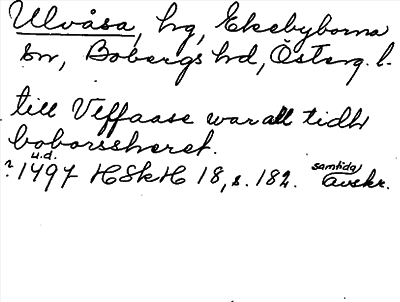 Ulvåsa, hg, Ekebyborna
sn, Bobergs hd, Österg. l.
till Vlffaase war all tidh
boborssheret.
u.d.
? 1497 HSkH 18, s. 182. samtida avskr.